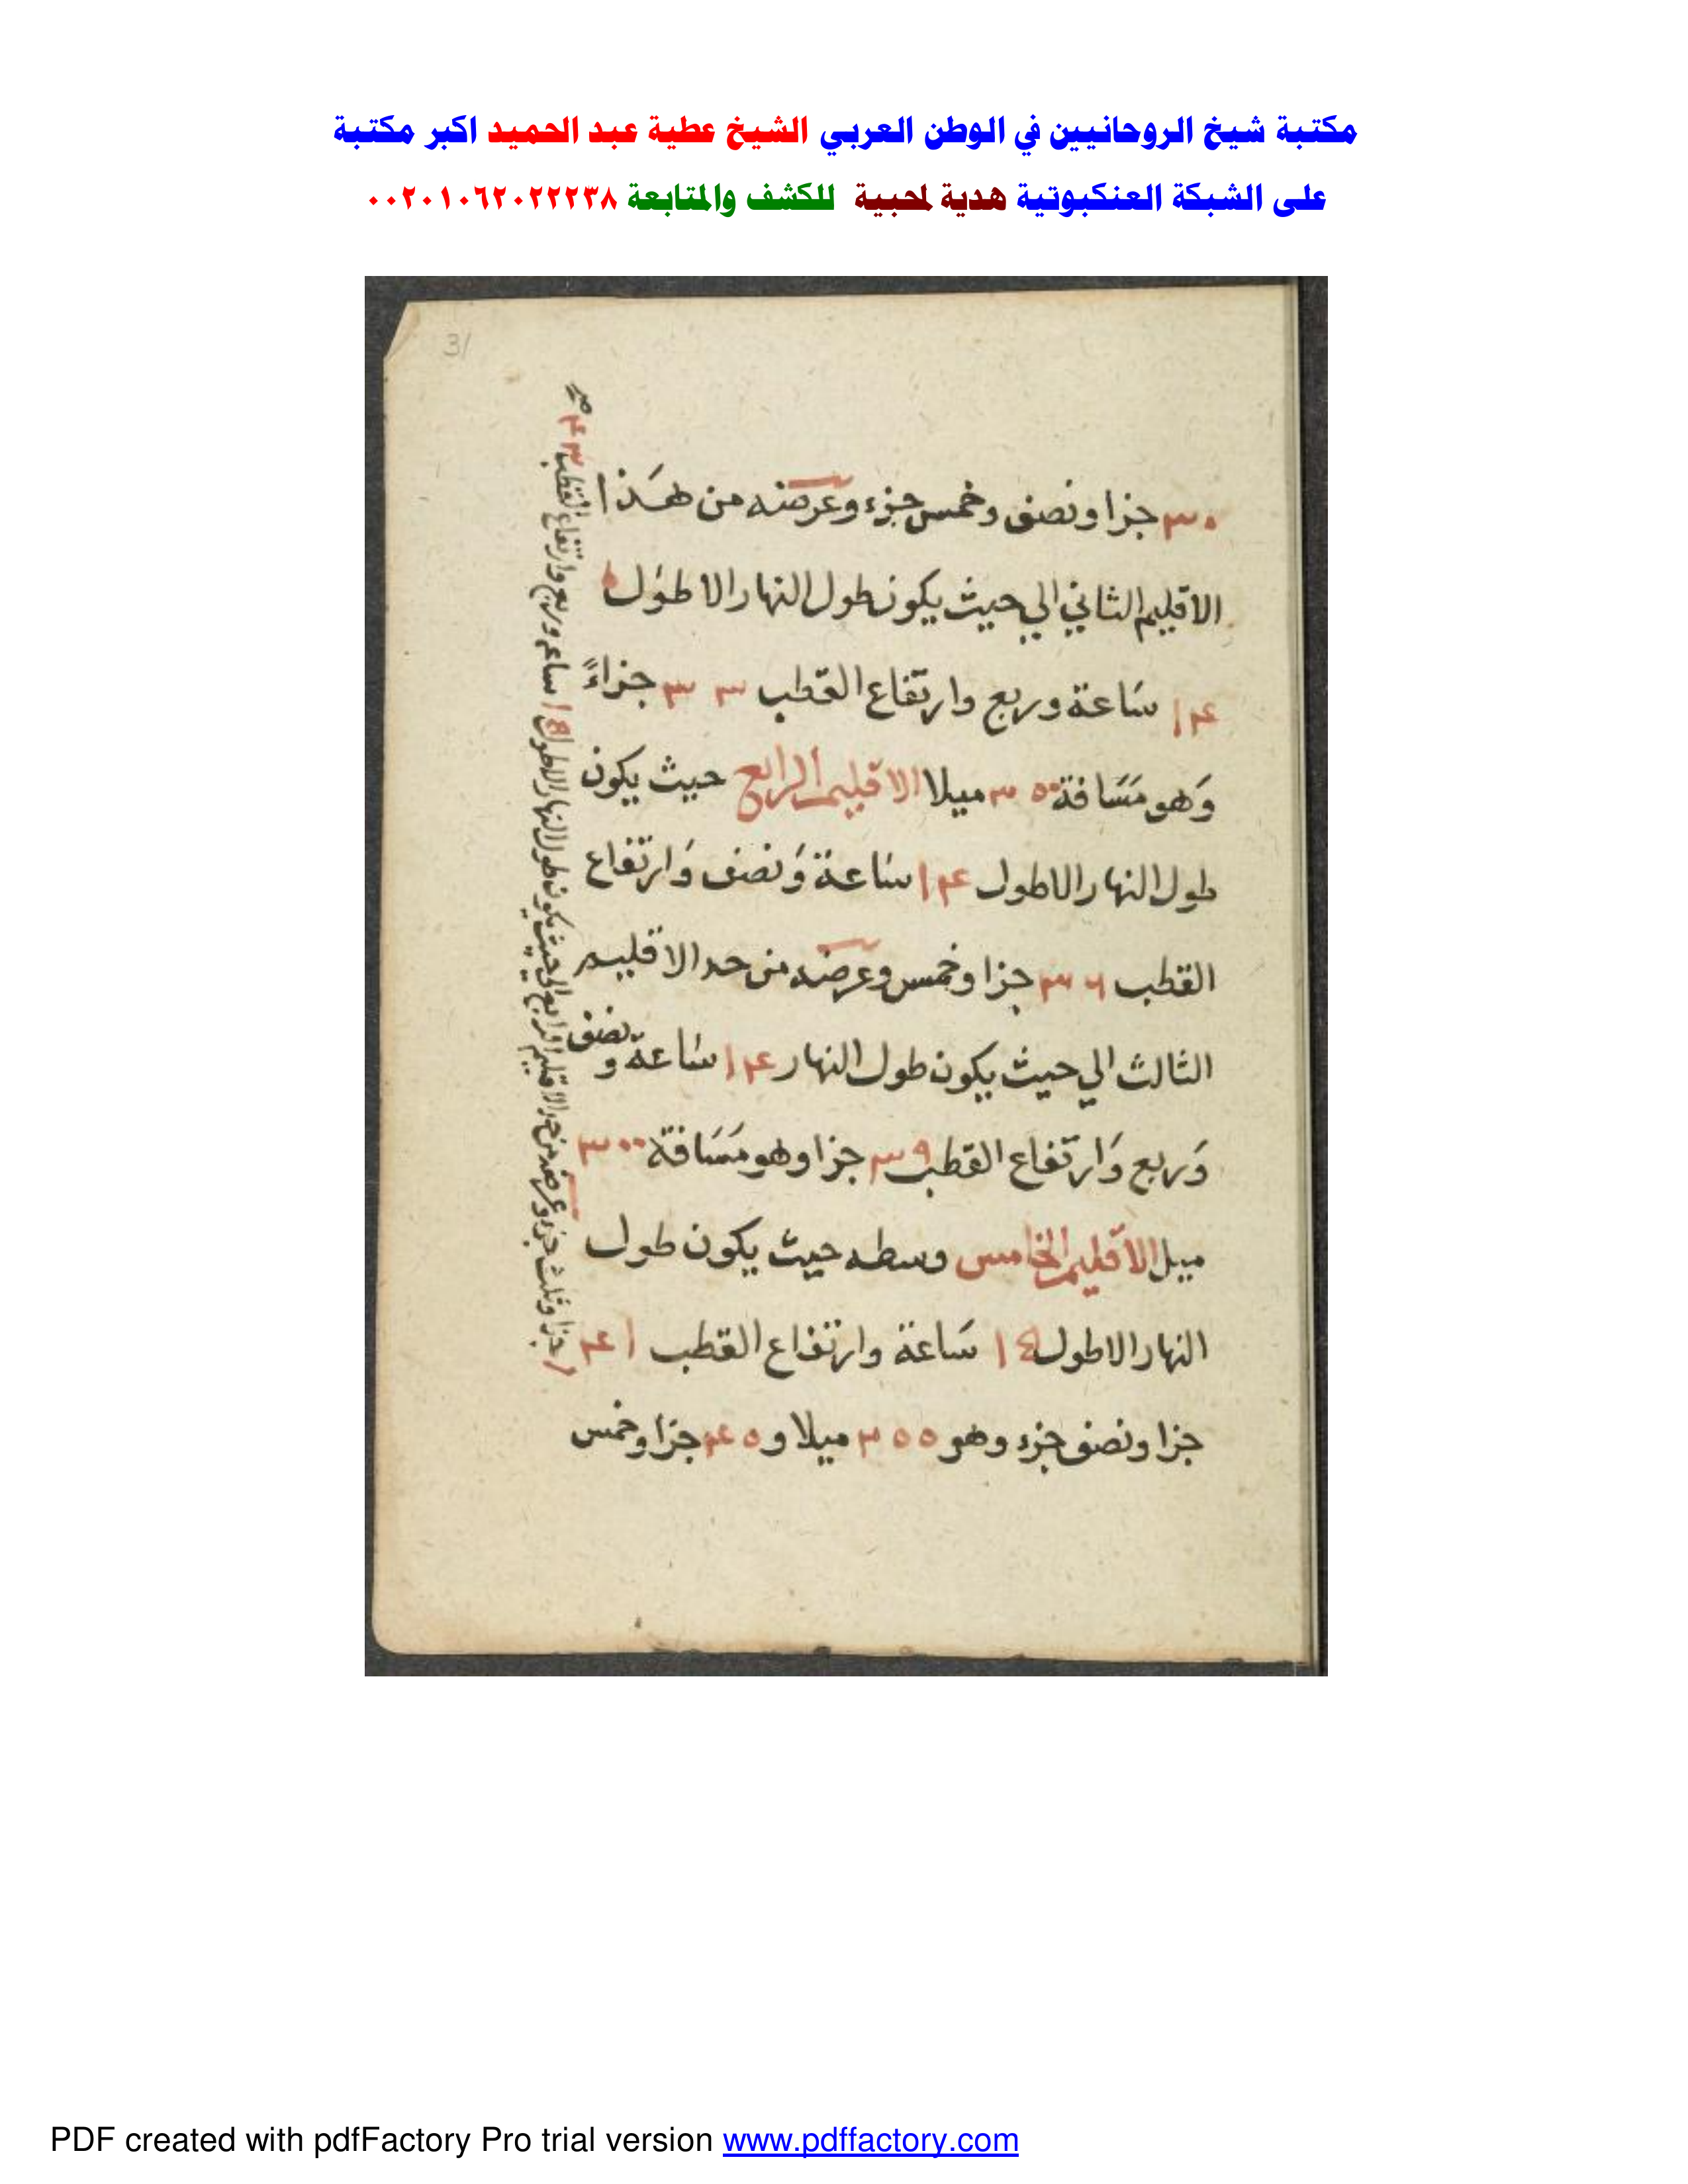 مكتبة شيخ الروحانيين في الوطن العربي الشيخ عطية عبد الحميد اكبر مكتبة
على الشبكة العنكبوتية هدية لمحبية للكشف والمتابعة ٠٠٢٠١٠٦٢٠٢٢٢٣٨
31
٣٠ جزا ونصف وخمس جزء وعرضه من هذا
الاقليم الثاني الي حيث يكون طول النهار الاطول
١٤ ساعة وربع وارتفاع القطب ٣٣ جزاءً
وهو مسافة ٣٥٠ ميلا الاقليم الرابع حيث يكون
طول النهار الاطول ١٤ ساعة ونصف وارتفاع
القطب ٣٦ جزا وخمس وعرضه من حد الاقليم
الثالث الي حيث يكون طول النهار ١٤ ساعة و نصف
وربع وارتفاع القطب ٣٩ جزا وهو مسافة ٣٠٠
ميل الاقليم الخامس وسطه حيث يكون طول
النهار الاطول ١٤ ساعة وارتفاع القطب ٤١
جزا ونصف جزء وهو ٣٥٥ ميلا و ٤٥ جزا وخمس
جزا وثلث جزء وعرضه من حد الاقليم الرابع الى حيث يكون طول النهار الاطول ١٥ ساعه وربع وارتفاع القطب ٤٣
PDF created with pdfFactory Pro trial version www.pdffactory.com